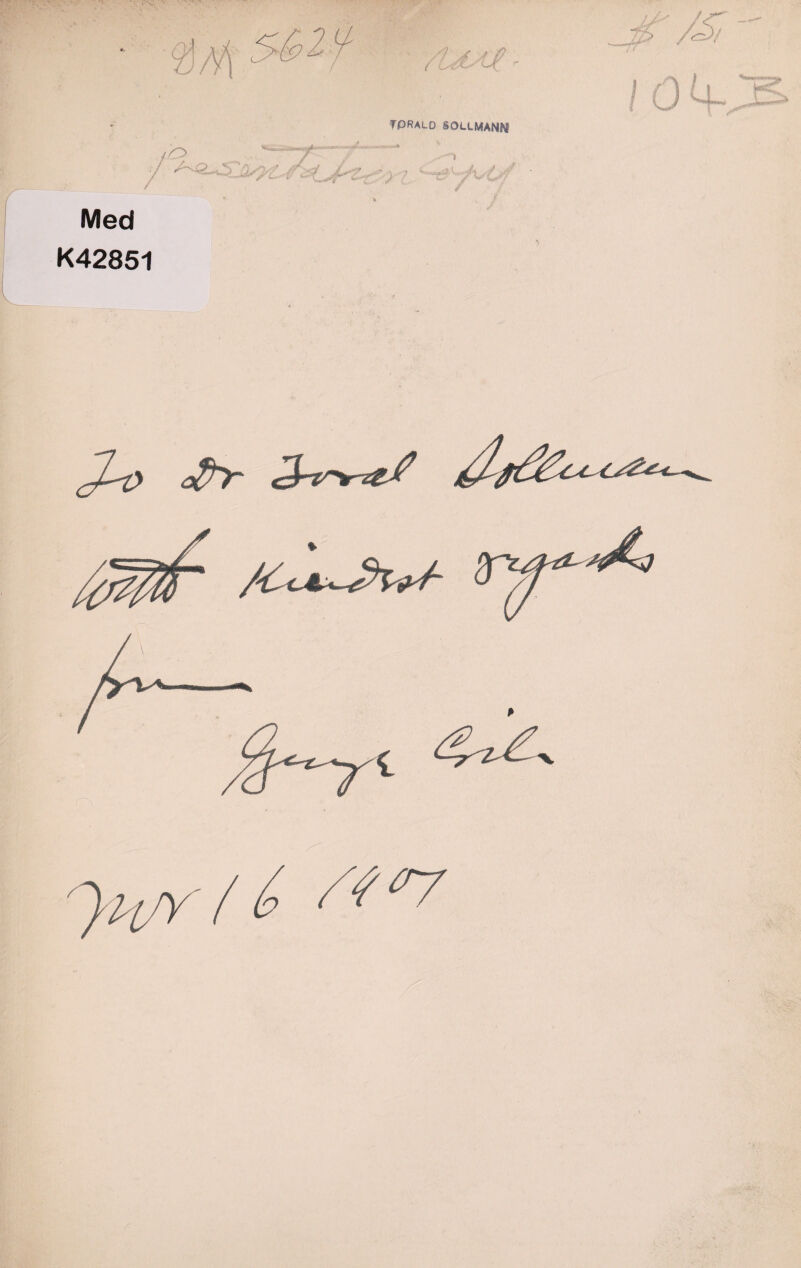 GM 5624 rare. $ 15,-
104 B
TORALD SOLLMANN
Presentation Copy
Med
K42851
To Dr Toral Sollmann
with Kindest regards
from
George Crile
Nov 16 1907